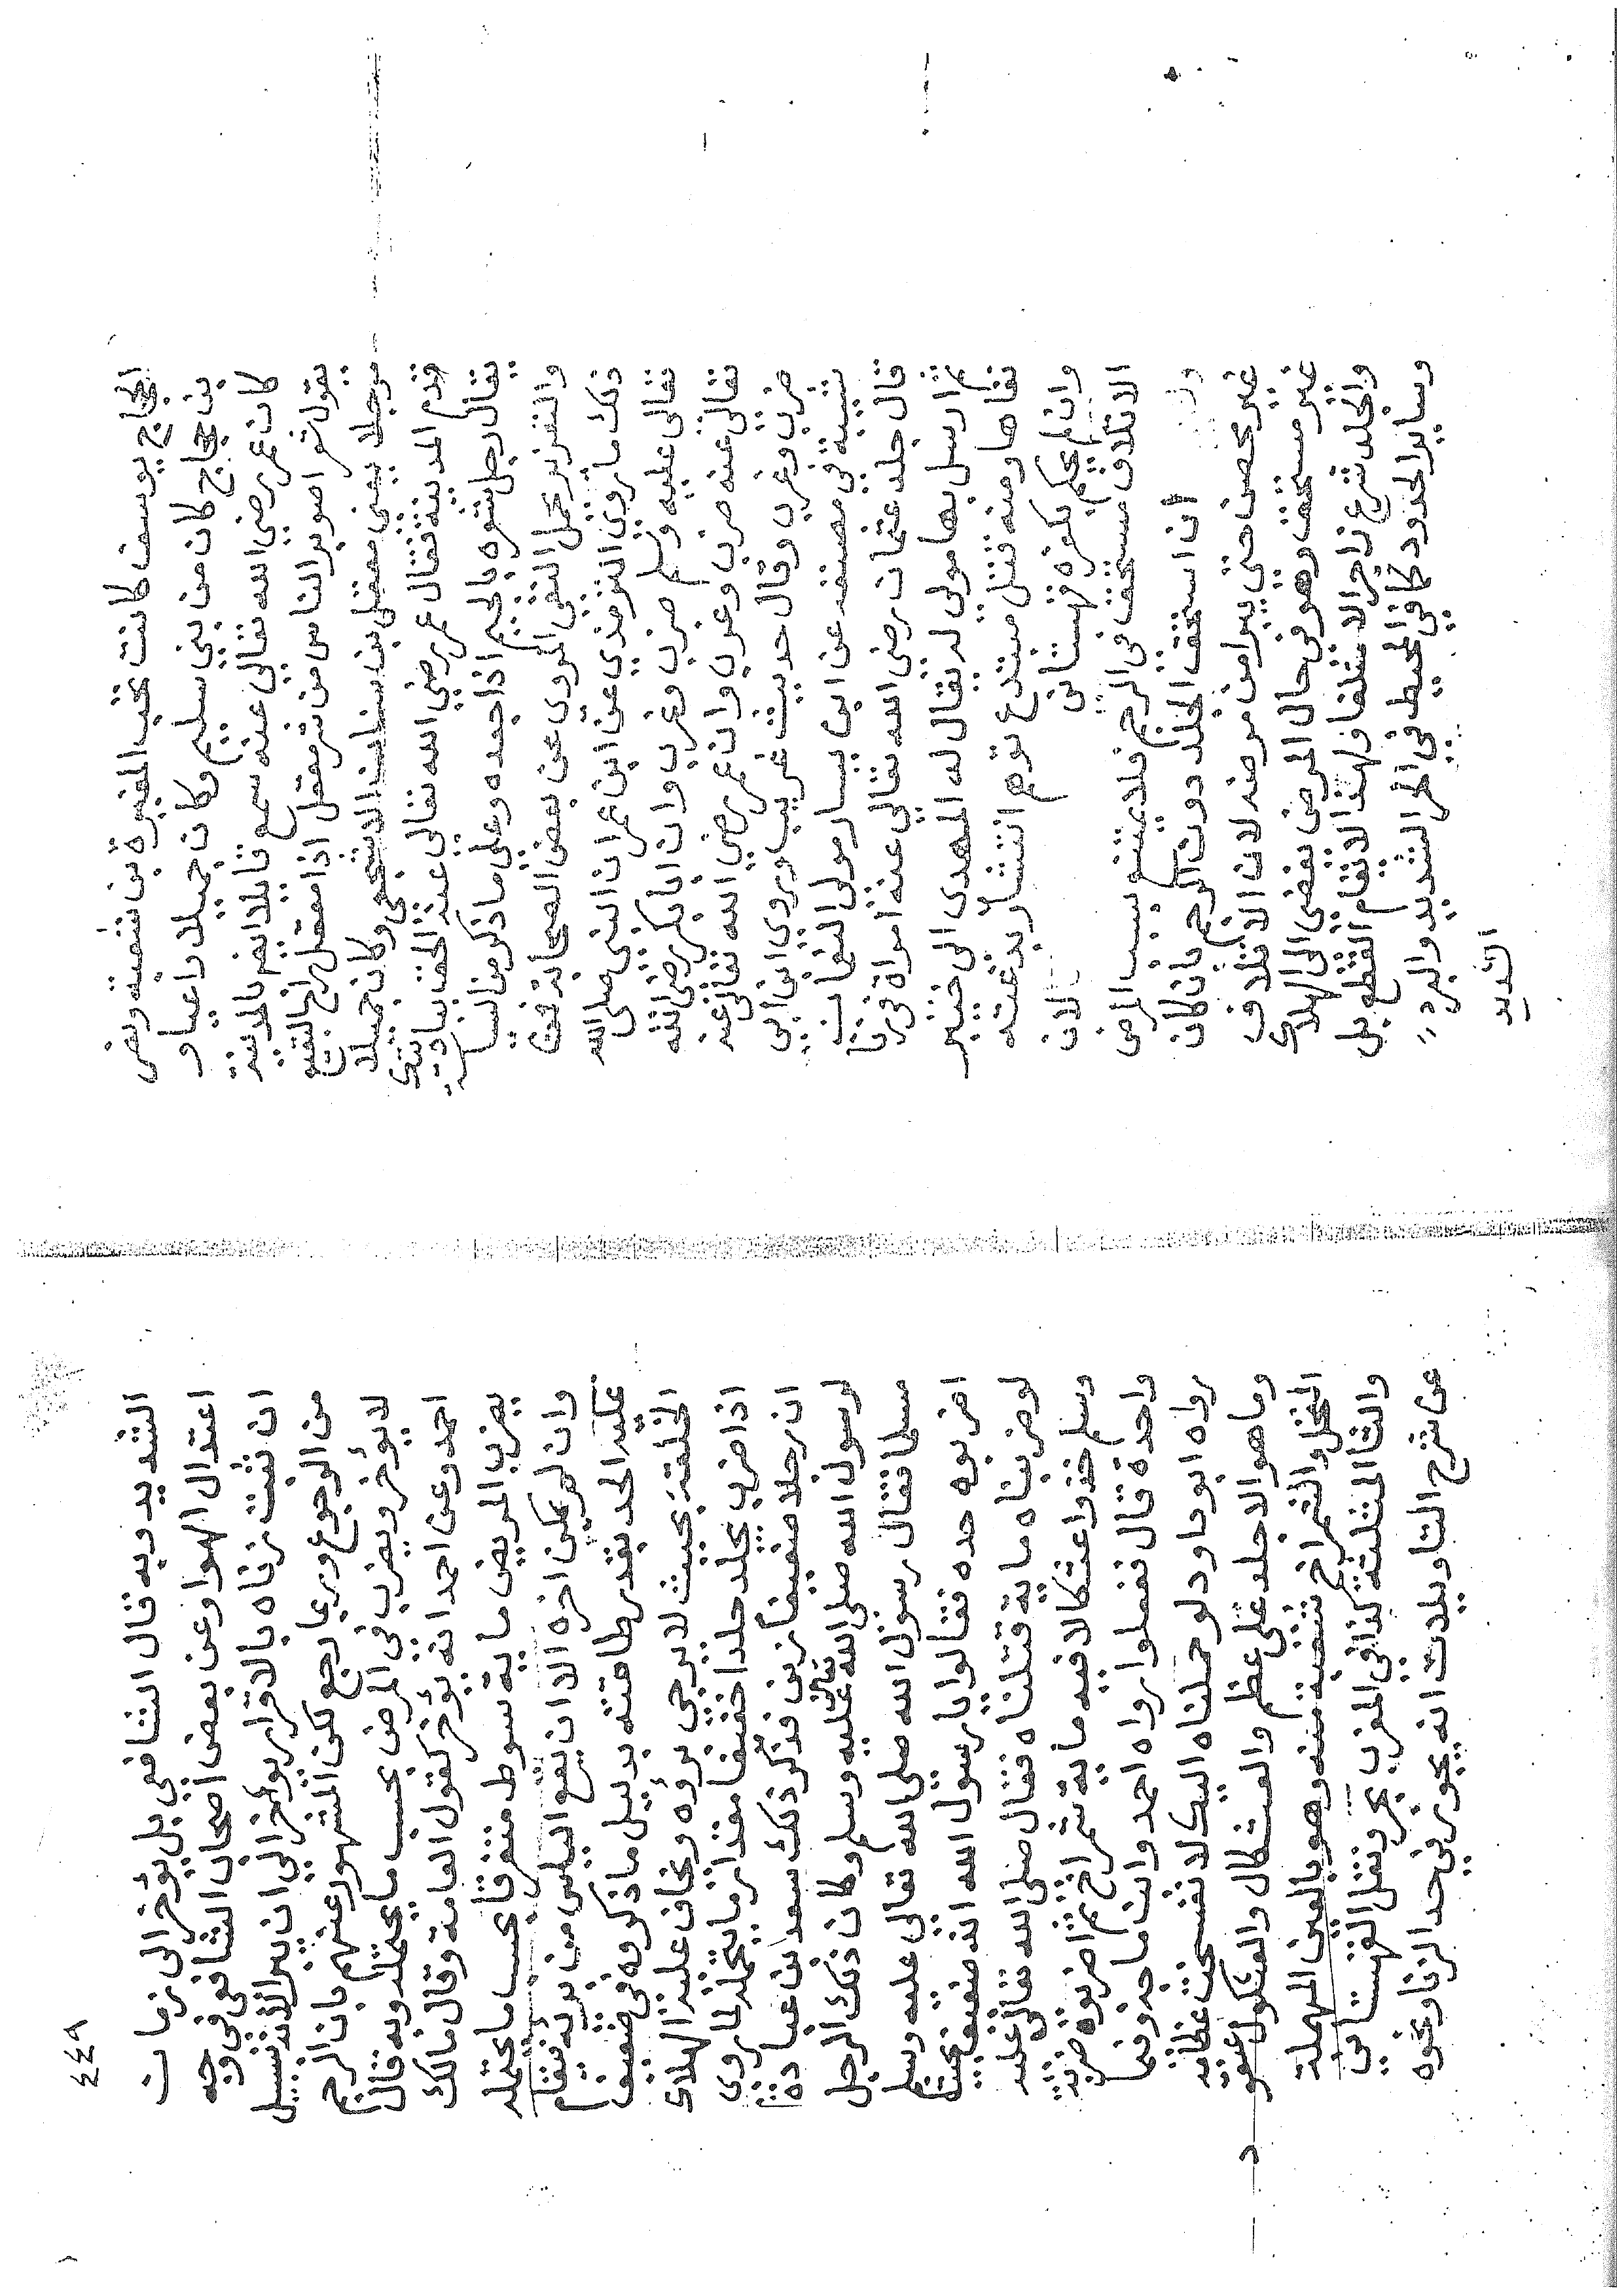 الحجاج يوسف كانت تحت المغيرة بن شعبة ونصر
بن حجاج كان من بني سليم وكان جميلا راعيا و
كان عمر رضي الله تعالى عنه سمع قايلا بالمدينة
يقول اعوذ برب الناس من شر معقل اذا معقل راح البقيع
مرجلا يعني معقل بن سنان الاشجعي وكان جميلا
قدم المدينة فقال عمر رضي الله تعالى عنه الحق بباديتك
يقال رجل شعره بالجيم اذا جعده وعلى ما ذكر من السياسة
والتعزير يحمل النفي المروي عن بعض الصحابة فمن
ذلك ما روى الترمذي عن ابن عمر ان النبي صلى الله
تعالى عليه وسلم ضرب وغرب وان ابا بكر رضي الله
تعالى عنه ضرب وغرب وان عمر رضي الله تعالى عنه
ضرب وغرب وقال حديث غريب وروى ابن ابي
شيبة في مصنفه عن ابي يسار مولى لعثمان
قال جلد عثمان رضي الله تعالى عنه امراة في زنا
ثم ارسل بها مولى له يقال له المهدي الى خيبر
نفاها ومنه قتل مبتدع توهم انتشار بدعته
وان لم يحكم بكفره قهستاني الان
الاتلاف مستحق في الرجم فلا يمتنع بسبب المرض
ان استحق الجلد دون الرجم بان كان
غير محصن حتى يبرا من مرضه لان الاتلاف
غير مستحق وهو في حال المرض يفضي الى الهلاك
والجلد شرع زاجرا لا متلفا ولهذا لا يقام القطع بل
وساير الحدود كما في المحيط في الحر الشديد والبرد
الشديد
٤٤٩
الشديد وبه قال الشافعي بل يؤخر الى زمان
اعتدال الهوا وعن بعض اصحاب الشافعي في وجه
ان ثبت زناه بالاقرار يؤخر الى ان يبرا لانه بسبيل
من الرجوع وربما رجع لكن المشهور عنهم بان الرجم
لا يؤخر ويضرب في المرض بحسب ما يحتمله وبه قال
احمد وعن احمد انه يؤخر كقول العامة وقال مالك
يضرب المريض ماية سوط متفرقا بحسب ما يحتمله
وان لم يكن اخره الا ان يقع الياس من بريه فيقام
عليه الحد بقدر طاقته بدليل ما ذكروه في ضعيف
الخلقة بحيث لا يرجى برؤه ويخاف عليه الهلاك
اذا ضرب يجلد جلدا خفيفا مقدار ما يتحمله لما روى
ان رجلا ضعيفا زنى فذكر ذلك سعد بن عبادة
لرسول الله صلى الله تعالى عليه وسلم وكان ذلك الرجل
مسلما فقال رسول الله صلى الله تعالى عليه وسلم
اضربوه حده فقالوا يا رسول الله انه ضعيف بحيث
لو ضربناه ماية قتلناه فقال صلى الله تعالى عليه
وسلم خذوا عثكالا فيه ماية شمراخ ثم اضربوه ضربة
واحدة قال ففعلوا رواه احمد وابن ماجه ونحوه
رواه ابو داود لو حملناه اليك لانفسخت عظامه
وما هو الا جلد على عظم والعثكال والعثكول عنقود
النخل والشمراخ شعبة منه وهو بالعين المهملة
والثا المثلثة كذا في المغرب بحر ونقل القهستاني
عن شرح التاويلات انه يجوز في حد الزنا ونحوه